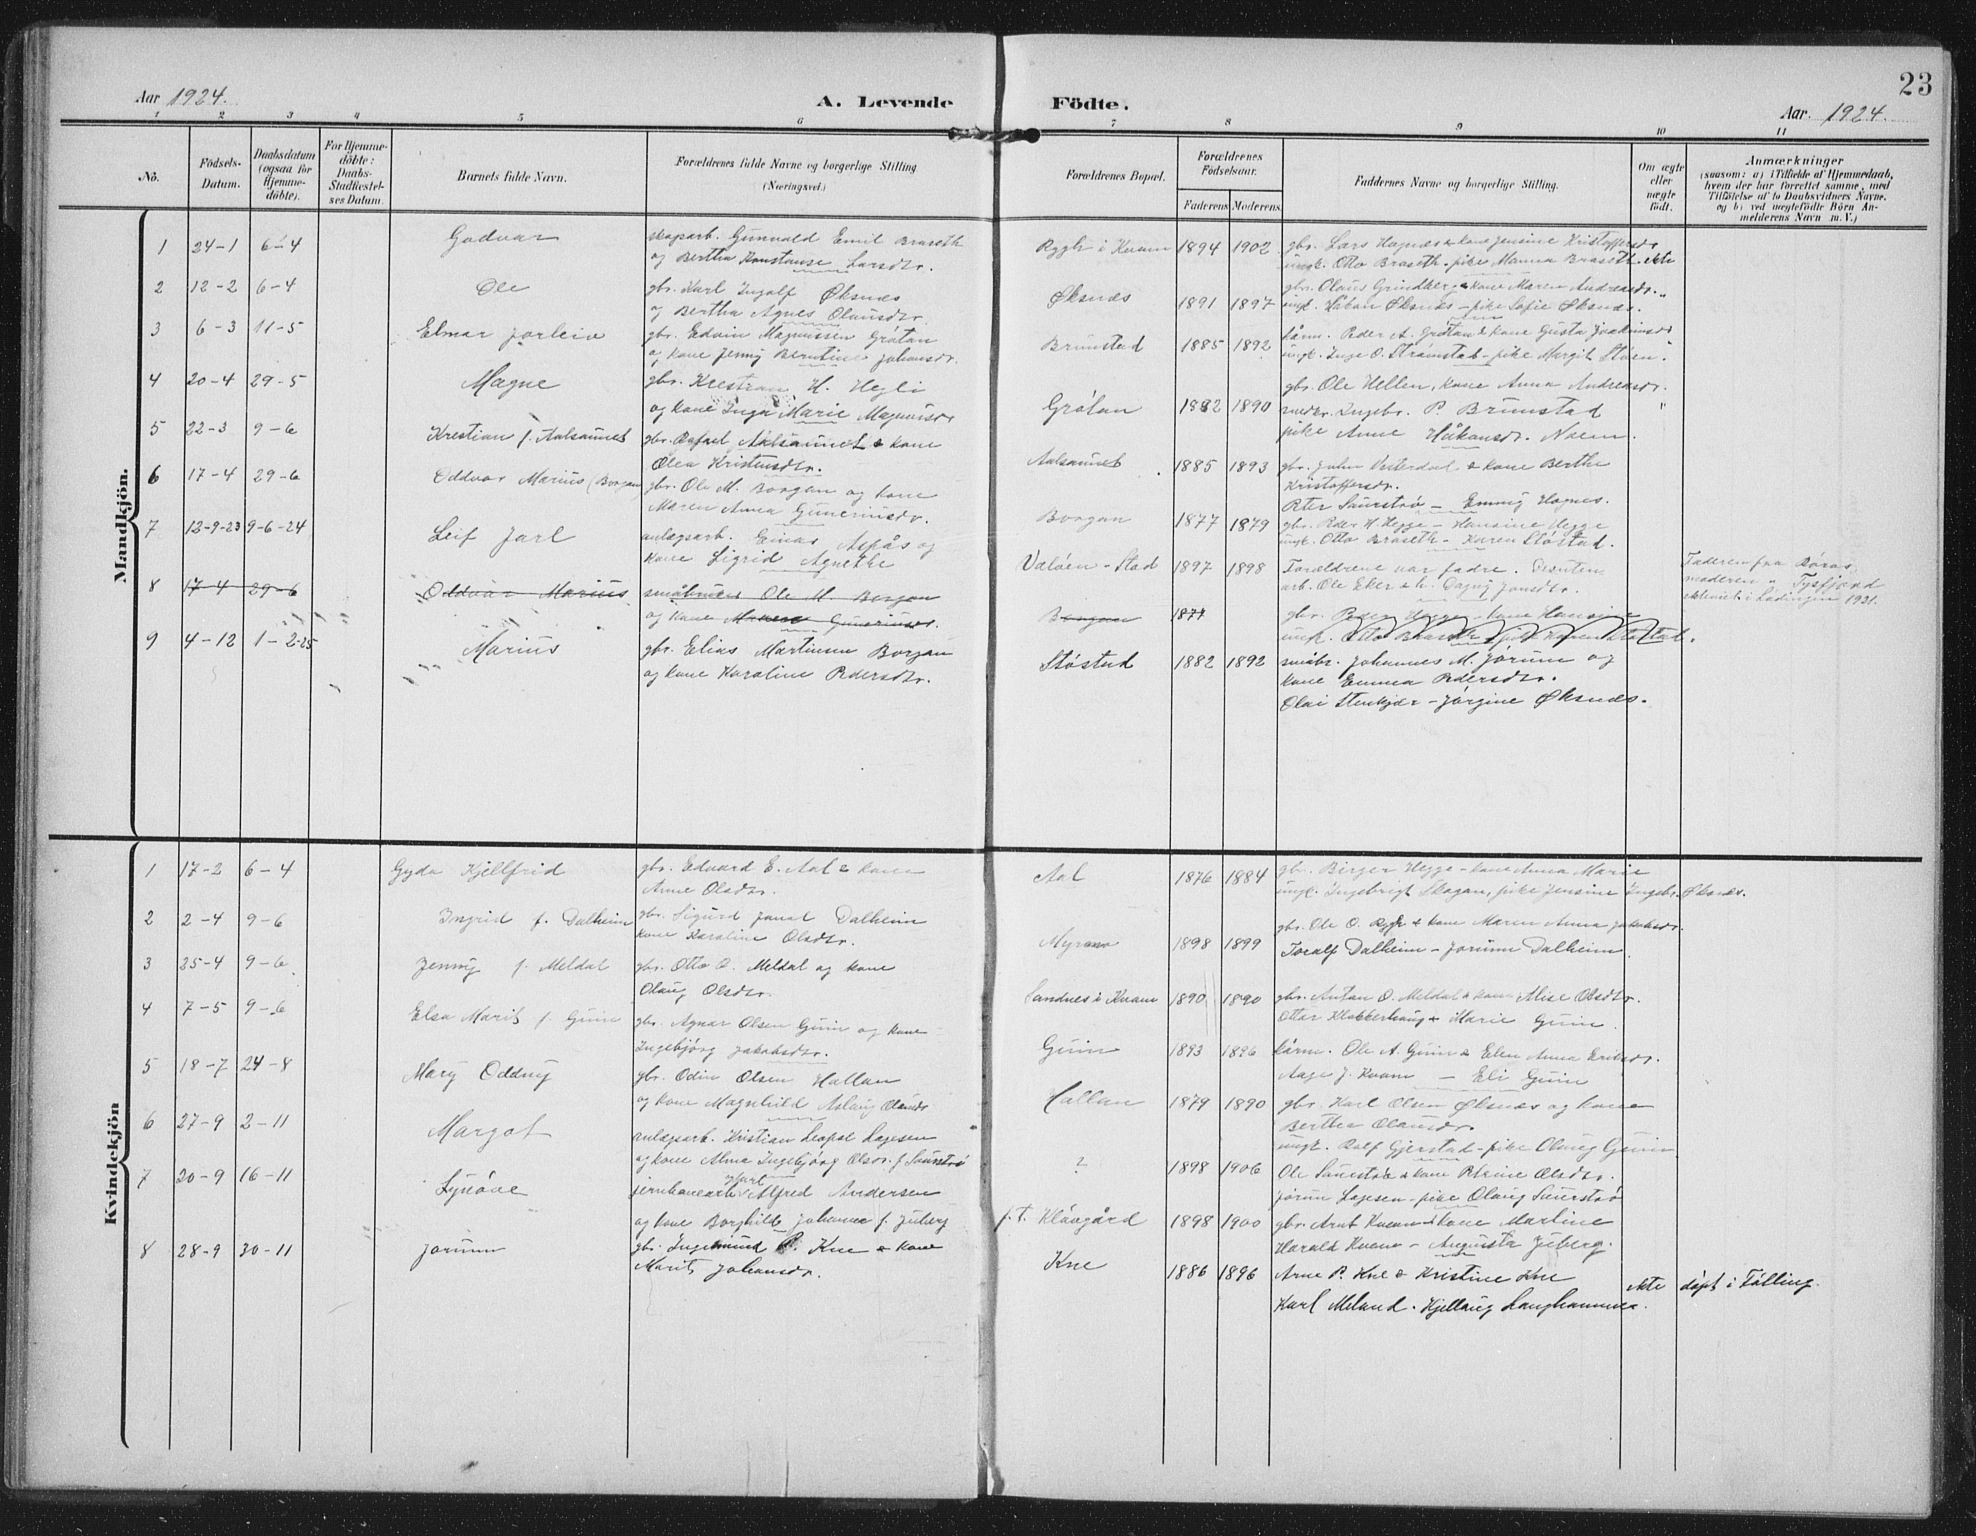 23
Aar 1924.
A. Levende Födte.
Aar. 1924.
1 2 3 4 5 6 7 8 9 10 11
No.
Födsels-
Datum.
Daabsdatum
(ogsaa for
Hjemme-
döbte).
For Hjemme-
döbte:
Daabs-
Stadfæstel-
ses Datum.
Barnets fulde Navn.
Forældrenes fulde Navne og borgerlige Stilling
(Næringsvei.)
Forældrenes Bopæl.
Forældrenes
Födselsaar.
Faderens Moderens
Faddernes Navne og borgerlige Stilling.
Om ægte
eller
uægte
födt.
Anmærkninger
(saasom: a) i Tilfælde af Hjemmedaab,
hvem der har forrettet samme, med
Tilföielse af to Daabsvidners Navne.
og b) ved uægtefödte Börn An-
melderens Navn m. V.)
Mandkjön.
1 24-1 6-4 Godvar
skogarb. Gunvald Emil Braseth
og Bertha Konstanse Larsdtr.
Rygh i Kvam 1894 1902
gbr. Lars Hognes & kone Jensine Kristoffersdr
ungk. Otto Braseth - pike Manna Braseth. ekte
2 12-2 6-4 Ole
gbr. Karl Ingolf Øksnes
og Bertha Agnes Olausdtr.
Øksnes 1891 1897
gbr. Olaus Grindberg & kone Maren Andreasdr. "
ungk. Håkon Øksnes - pike Sofie Øksnes.
3 6-3 11-5 Elmar Jorleiv
gbr. Edvin Magnussen Grøtan
og kone Jenny Berntine Johansdr.
Brunstad 1885 1892
kårm. Peder A. Grøtan & kone Gusta Joakimsdr
ungk. Inge O. Strømstad - pike Margit Støen. "
4 20-4 29-5 Magne
gbr. Krestian H. Hegli
og kone Inga Marie Magnusdr
Grøtan 1882 1890
gbr. Ole Hellem, kone Anna Andreasdr.
snedkr. Ingebr. P. Brunstad "
pike Anne Håkonsdr. Noem.
5 22-3 9-6 Krestian f. Aalsaunet
gbr. Rafael Aalsaunet & kone
Olea Kristensdtr.
Aalsaunet 1885 1893
gbr. John Vesterdal & kone Berthe
Kristoffersdr.
Peter Saurstrø - Emmy Hognes.
6 17-4 29-6 Oddvar Marius (Borgan
gbr. Ole M. Borgan og kone
Maren Anna Guneriusdr.
Borgan 1877 1879
gbr. Peder H. Hegge - Hansine Hegge
ungk. Otto Braseth - Karen Støstad.
7 12-9-23 9-6-24 Leif Jarl
anlegsarb. Einar Aspås og
kone Sigrid Agnethe
Valøen - Stad 1897 1898
Foreldrene var fadre. Desuten
arb. Ole Eker & h. Dagny Jonsdr.
Faderen fra Røros,
moderen " Tysfjord
ekteviet i Lødingen 1921.
8 17-4 29-6 Oddvar Marius.
småbruker Ole M. Borgan
og kone Maren Guneriusdr.
Borgan 1877
gbr. Peder Hegge - kone Hansine
ungk. Otto Braseth - pike Karen Støstad.
9 4-12 1-2-25 Marius
gbr. Elias Martinsen Borgan
og kone Karoline Pedersdtr.
Støstad 1882 1892
småbr. Johannes M. Jørum og
kone Emma Pedersdtr.
Olai Stenkjær - Jørgine Øksnes.
Kvindekjön
1 17-2 6-4 Gyda Kjellfrid
gbr. Edvard E. Aal & kone
Anne Olsdtr.
Aal 1876 1884
gbr. Birger Hegge - kone Anna Marie
ungk. Ingebrigt Skogan, pike Jensine Ingebr. Øksnes.
2 2-4 9-6 Ingrid f. Dalheim
gbr. Sigurd Dalheim
kone Karoline Olsdtr.
Myramo 1898 1899
gbr. Ole O. Rygh & kone Maren Anna Jakobsdr.
Toralf Dalheim - Jorunn Dalheim
3 25-4 9-6 Jenny f. Meldal
gbr. Otto O. Meldal og kone
Olaug Olsdtr.
Sandnes i Kvam 1890 1890
gbr. Anton O. Meldal & kone Alise Olsdtr.
Ottar Klokkerhaug & Marie Guin.
4 7-5 9-6 Elsa Marit f. Guin
gbr. Agnar Olsen Guin og kone
Ingebjørg Jakobsdtr.
Guin 1893 1896
kårm. Ole A. Guin & Elen Anna Eriksdr.
Aage J. Kvam - Eli Guin
5 18-7 24-8 Mary Oddny
gbr. Odin Olsen Hallan
og kone Magnhild Aslaug Olausdr
Hallan 1879 1890
gbr. Karl Olsen Øksnes og kone
Bertha Olausdr.
ungk. Rolf Gjerstad - pike Olaug Guin
6 27-9 2-11 Margot
anlegsarb. Kristian Leopol Lagesen
og kone Alma Ingebjørg Olsdr. f. Saurstrø
? 1898 1906
Ole Saurstrø & kone Petrine Olsdtr.
Jørun Lagesen - pike Olaug Saurstrø
7 20-9 16-11 Synøve
jernbanearb. Karl Alfred Andersen
og kone Borghild Johanna f. Juberg
f. T. Kløvgård 1898 1900
gbr. Arnt Kvam & kone Martine
Harald Kvam - Augusta Juberg.
8 28-9 30-11 Jorunn
gbr. Ingemund P. Kne & kone
Marit Johansdr.
Kne 1886 1896
Arne P. Kne & Kristine Kne
Karl Meland. Hjellaug Langhammer.
ekte døpt i Følling.